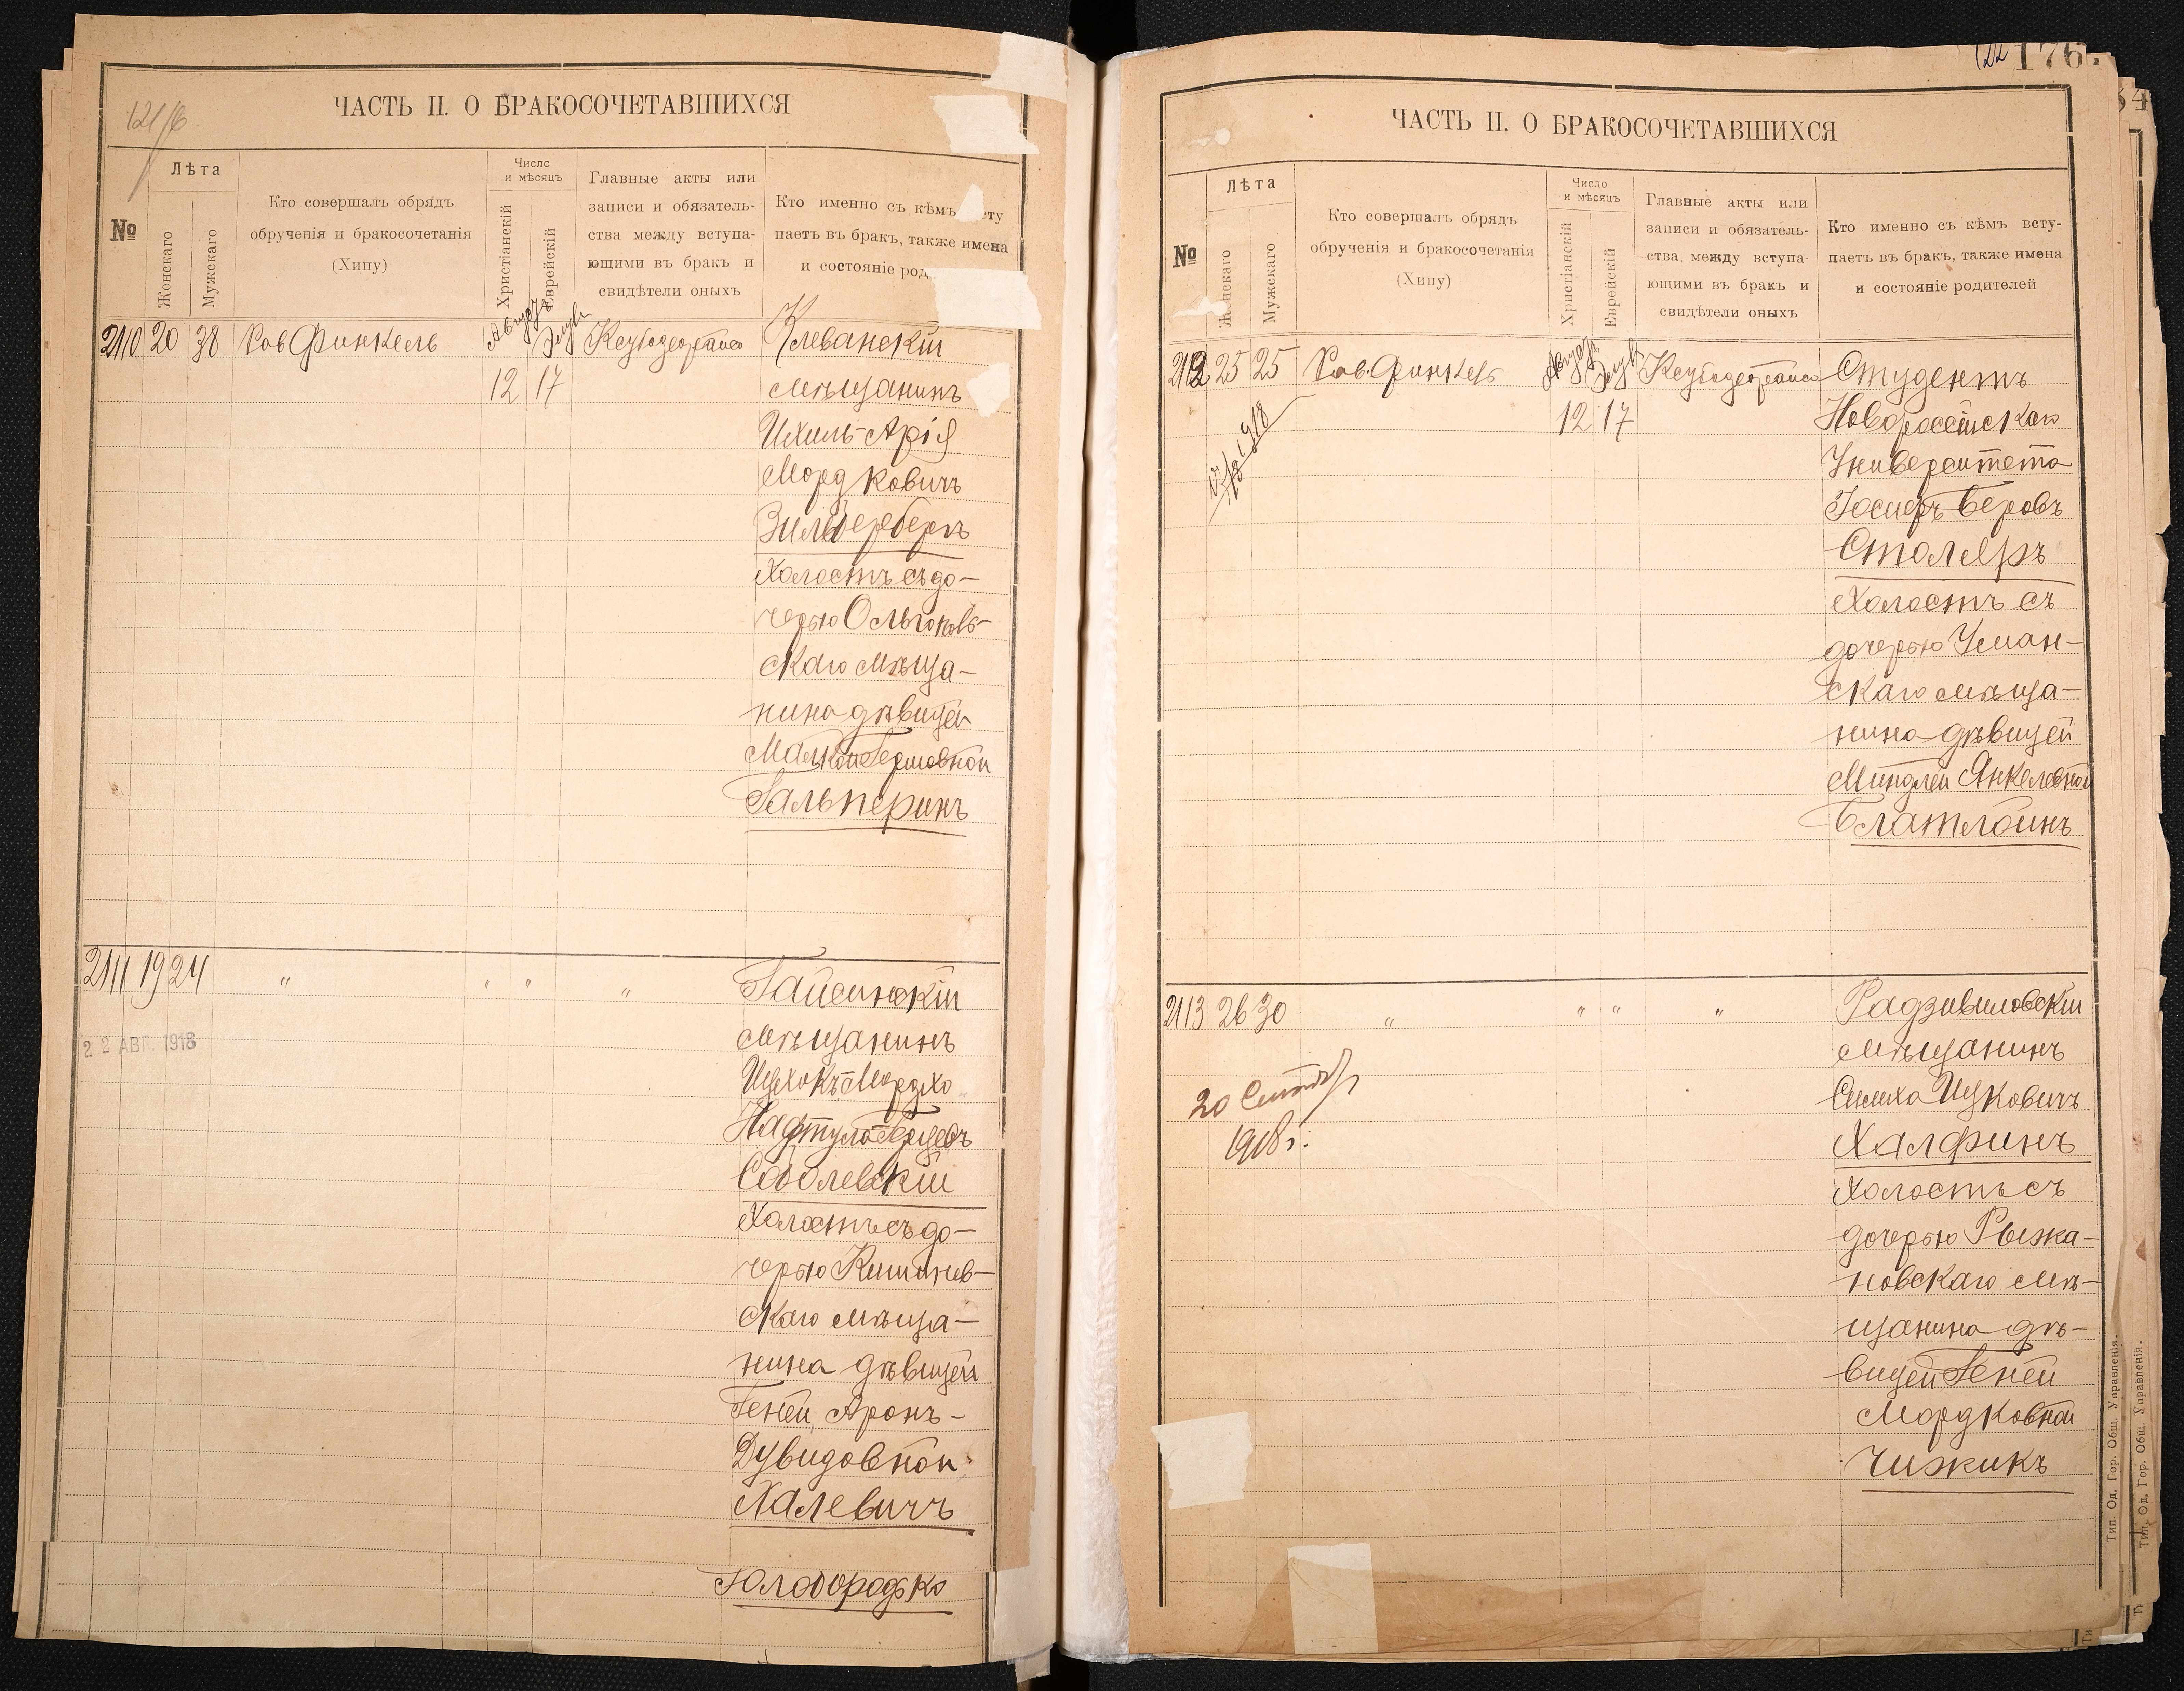 121/6
ЧАСТЬ II. О БРАКОСОЧЕТАВШИХСЯ
№
Лѣта
Женскаго
Мужскаго
Кто совершалъ обрядъ
обрученія и бракосочетанія
(Хипу)
Число
и мѣсяцъ
Христіанскій
Еврейскій
Главные акты или
записи и обязатель-
ства между вступа-
ющими въ бракъ и
свидѣтели оныхъ
Кто именно съ кѣмъ
паетъ въ бракъ, также имена
и состояніе
2110 20 38 Рав Финкель
Августъ Элулъ
12 17
Клеванскій
мѣщанинъ
Ихиль-Арія
Мордковичъ
Зильберберъ
Холостъ съ до-
черью Ольгополь-
скаго мѣща-
нина дѣвицей
Малкой Гершовной
Гальперинъ
2111 19 24 " " " "
22 АВГ. 1918
Гайсинскій
мѣщанинъ
Ицхокъ-Мордхо
Соболевскій
Холостъ съ до-
черью Кишинев-
скаго мѣща-
нина дѣвицей
Геней Аронъ-
Дувидовной
Халевичъ
Голобородько
122 176.
ЧАСТЬ II. О БРАКОСОЧЕТАВШИХСЯ
№
Лѣта
Женскаго
Мужскаго
Кто совершалъ обрядъ
обрученія и бракосочетанія
(Хипу)
Число
и мѣсяцъ
Христіанскій
Еврейскій
Главные акты или
записи и обязатель-
ства между вступа-
ющими въ бракъ и
свидѣтели оныхъ
Кто именно съ кѣмъ всту-
паетъ въ бракъ, также имена
и состояніе родителей
2112 25 25 Рав. Финкель
Августъ Элулъ
12 17
Студентъ
Новороссійскаго
Университета
Іосифъ Беровъ
Столяръ
Холостъ съ
дочерью Уман-
скаго мѣща-
нина дѣвицей
Миндлей Янкелевной
Блатлойнъ
2113 26 30 " " " "
20 Сентября
1918 г.
Радзивиловскій
мѣщанинъ
Симха Ицковичъ
Халфинъ
Холостъ съ
дочерью Рыжа-
новскаго мѣ-
щанина дѣ-
вицей Геней
Мордковной
Чижикъ
Тип. Од. Гор. Общ. Управленія.
Тип. Од. Гор. Общ. Управленія.